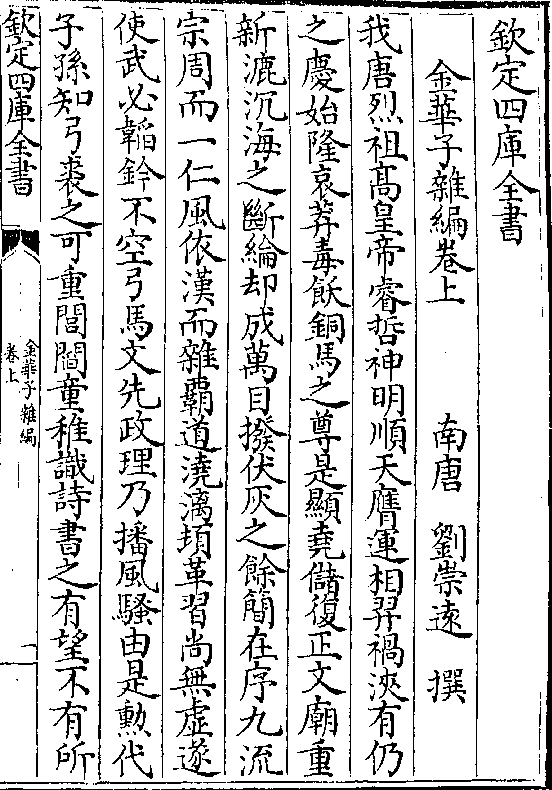 欽定四庫全書
金華子雜編卷上
南唐　劉崇遠　撰
我唐烈祖高皇帝睿哲神明順天膺運相羿禍浹有仍
之慶始隆哀莽毒飫銅馬之尊是顯堯儲復正文廟重
新漉沉海之斷綸却成萬目撥伏灰之餘簡在序九流
宗周而一仁風依漢而雜霸道澆漓頓革習尚無虛遂
使武必韜鈐不空弓馬文先政理乃播風騷由是勲代
子孫知弓裘之可重閭閻童稚識詩書之有望不有所
欽定四庫全書
金華子雜編
卷上
一